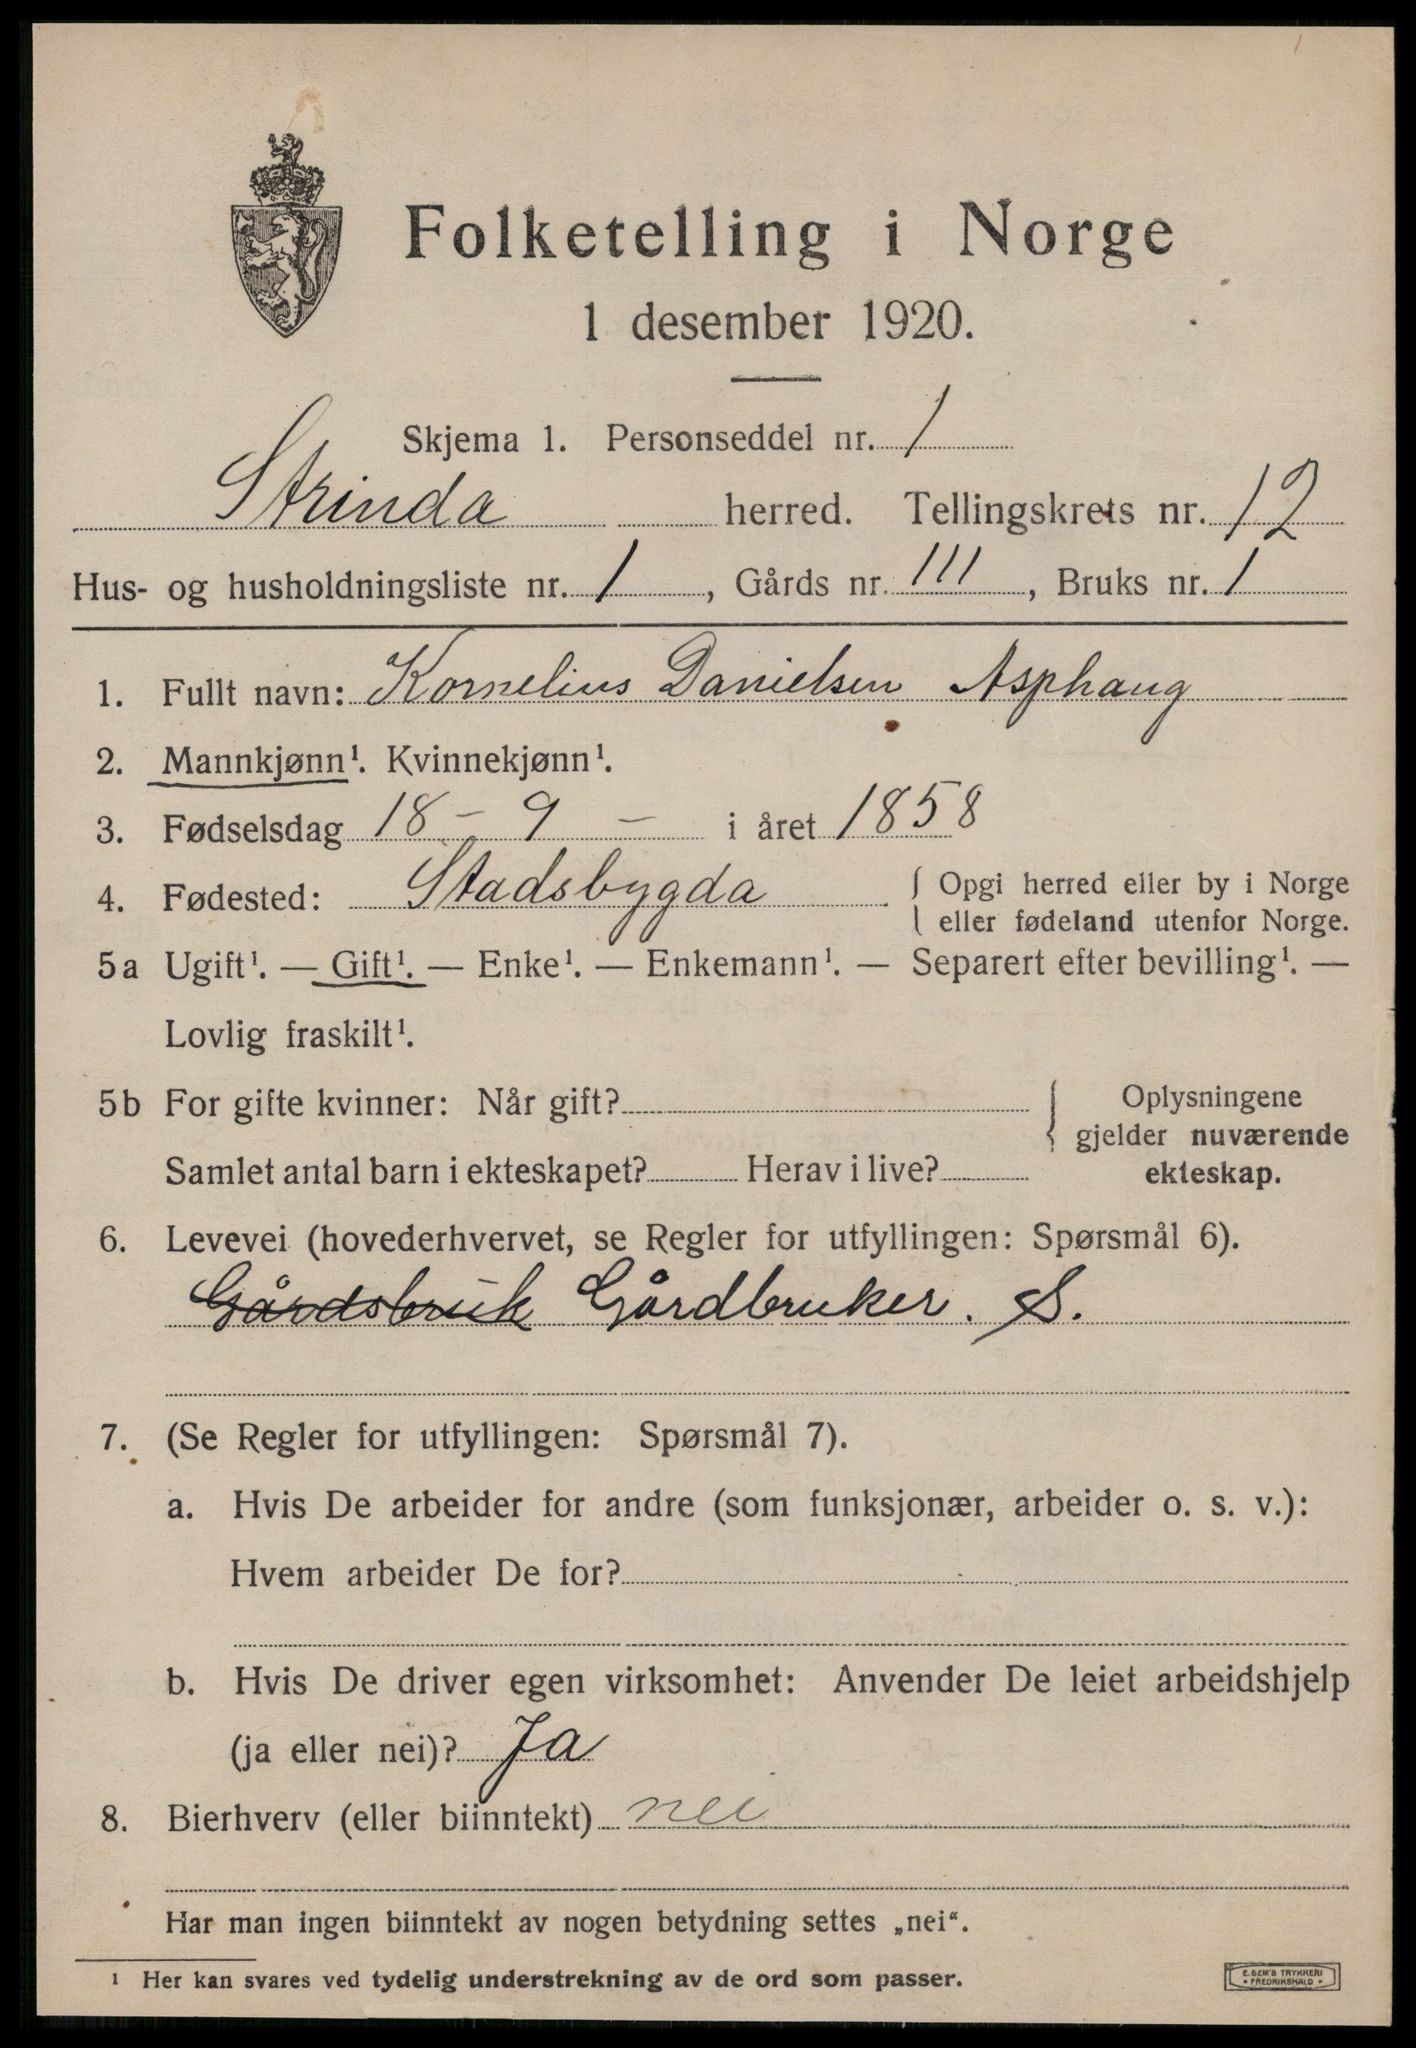 Folketelling i Norge
1 desember 1920.
Skjema 1. Personseddel nr. 1
Strinda herred. Tellingskrets nr. 12
Hus- og husholdningsliste nr. 1, Gårds nr. 111, Bruks nr. 1
1. Fullt navn: Kornelius Danielsen Asphaug
2. Mannkjønn¹. Kvinnekjønn¹.
3. Fødselsdag 18 - 9 - i året 1858
4. Fødested: Stadsbygda { Opgi herred eller by i Norge
eller fødeland utenfor Norge.
5a Ugift¹. — Gift¹. — Enke¹. — Enkemann¹. — Separert efter bevilling¹. —
Lovlig fraskilt¹.
5b For gifte kvinner: Når gift? { Oplysningene
gjelder nuværende
Samlet antal barn i ekteskapet? Herav i live? ekteskap.
6. Levevei (hovederhvervet, se Regler for utfyllingen: Spørsmål 6).
Gårdsbruk Gårdbruker. S.
7. (Se Regler for utfyllingen: Spørsmål 7).
a. Hvis De arbeider for andre (som funksjonær, arbeider o. s. v.):
Hvem arbeider De for?
b. Hvis De driver egen virksomhet: Anvender De leiet arbeidshjelp
(ja eller nei)? Ja
8. Bierhverv (eller biinntekt) nei
Har man ingen biinntekt av nogen betydning settes „nei“.
¹ Her kan svares ved tydelig understrekning av de ord som passer.
E. SEM'S TRYKKERI
FREDRIKSHALD